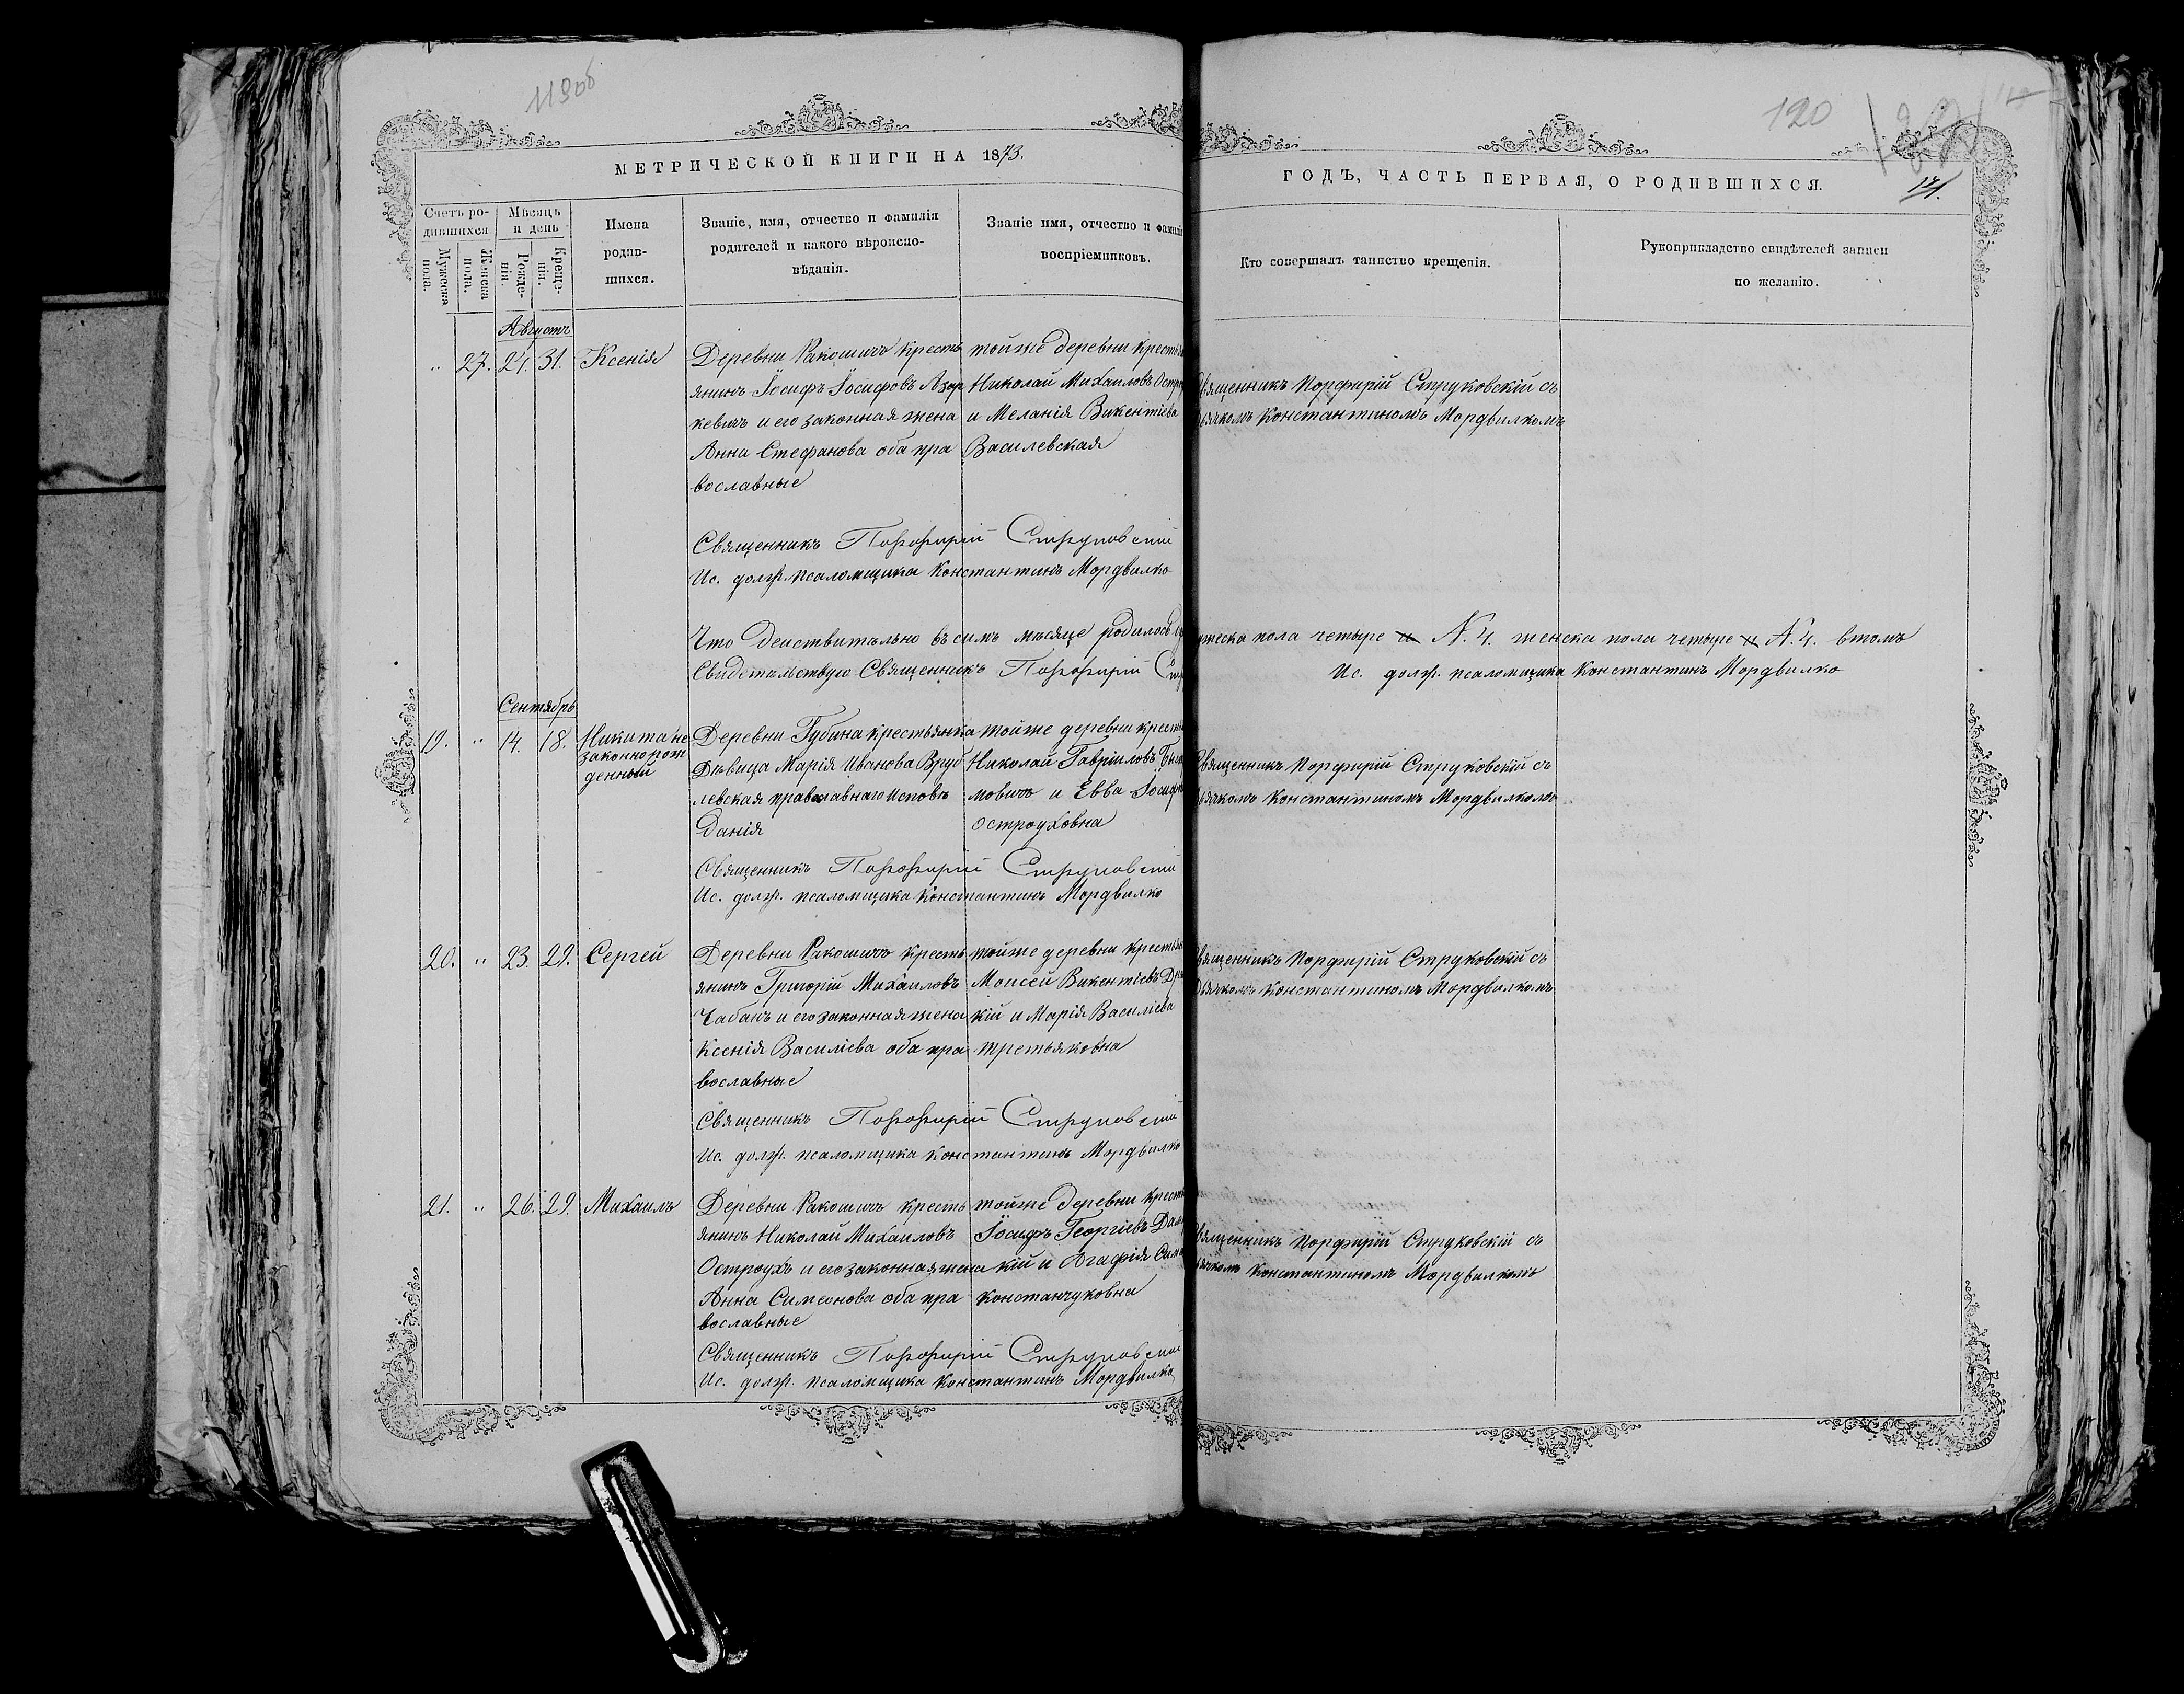 119об
120
МЕТРИЧЕСКОЙ КНИГИ НА 1873.
ГОДЪ, ЧАСТЬ ПЕРВАЯ, О РОДИВШИХСЯ.
Счетъ ро-
дившихся
Мужеска
пола.
Женска
пола.
Мѣсяцъ
и день
Рожде-
нія.
Креще-
нія.
Имена
родив-
шихся.
Званіе, имя, отчество и фамилія
родителей и какого вѣроиспо-
вѣданія.
Званіе имя, отчество и фамилія
воспріемниковъ.
Кто совершалъ таинство крещенія.
Рукоприкладство свидѣтелей записи
по желанію.
Августъ
„ 27. 21. 31. Ксенія
Деревни Ракошичъ кресть
янинъ Іосифъ Іосифовъ Азар
кевичъ и его законная жена
Анна Стефанова оба пра
вославные
тойже деревни крестья
Николай Михаиловъ Остро
и Меланія Викентіева
Василевская
Священникъ Порфирій Струковскій съ
дьячкомъ Константиномъ Мордвилкомъ
Священникъ Порфирій Струковскій
Ис. долж. псаломщика Константинъ Мордвилко
Что действительно въ семъ мѣсяце родилось мужеска пола четыре N. 4. женска пола четыре N. 4. втомъ
Свидетельствую Священникъ Порфирій Стр
Ис. долж. псаломщика Константинъ Мордвилко
Сентябрь
19. „ 14. 18. Никита не
законнорож
денный
Деревни Губина крестьянка
Дѣвица Марія Иванова Вруб
левская православнаго исповѣ
данія
тойже деревни кресть
Николай Гавріиловъ
мовичъ и Евва Іосиф
Остроуховна
Священникъ Порфирій Струковскій съ
дьячкомъ Константиномъ Мордвилкомъ
Священникъ Порфирій Струковскій
Ис. долж. псаломщика Константинъ Мордвилко
20. „ 23. 29. Сергей
Деревни Ракошичъ кресть
янинъ Григорій Михаиловъ
Чабанъ и его законная жена
Ксенія Василіева оба пра
вославные
тойже деревни крестья
Моисей Викентіевъ
кій и Марія Василіева
третьяковна
Священникъ Порфирій Струковскій съ
дьячкомъ Константиномъ Мордвилкомъ
Священникъ Порфирій Струковскій
Ис. долж. псаломщика Константинъ Мордвилко
21. „ 26. 29. Михаилъ
Деревни Ракошичъ кресть
янинъ Николай Михаиловъ
Остроухъ и его законная жена
Анна Симеонова оба пра
вославные
тойже деревни кресть
Іосифъ Георгіевъ
кій и Агафія Сим
Констанчуковна
Священникъ Порфирій Струковскій съ
дьячкомъ Константиномъ Мордвилкомъ
Священникъ Порфирій Струковскій
Ис. долж. псаломщика Константинъ Мордвилко